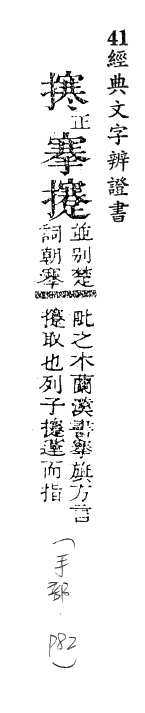 41經典文字辨證書
𢷤正搴攓
並別楚
詞朝搴
毗之木蘭漢書搴旗方言
攓取也列子攓蓬而指
(手部. P82)